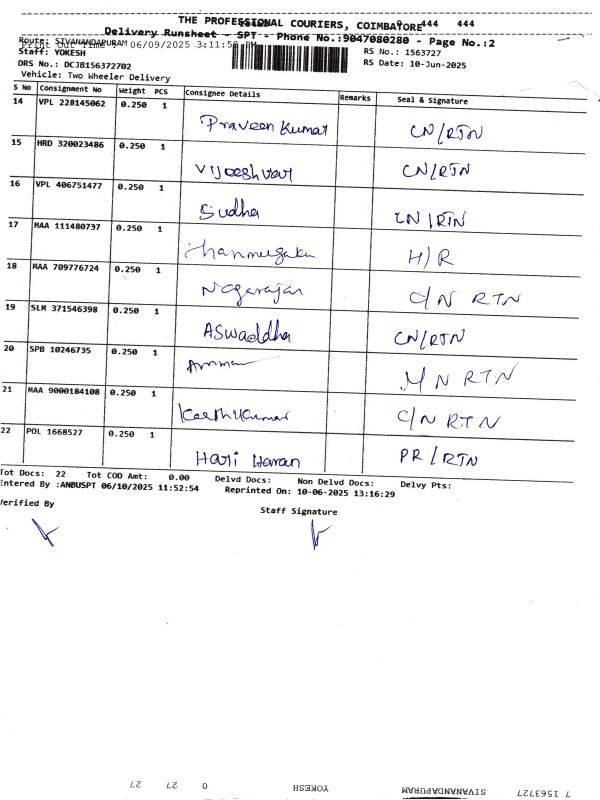 THE PROFESSIONAL COURIERS, COIMBATORE 444 444
Delivery Runsheet - SPT - Phone No.:9047080280 - Page No.:2
Route: SIVANANDAPURAM
Print Out Time : 06/09/2025 3:11:58 PM
Staff: YOKESH RS No.: 1563727
DRS No.: DCJB156372702 RS Date: 10-Jun-2025
Vehicle: Two Wheeler Delivery
S No Consignment No Weight PCS Consignee Details Remarks Seal & Signature
14 VPL 228145062 0.250 1 Praveen Kumar CN/RTN
15 HRD 320023486 0.250 1 CN/RTN
16 VPL 406751477 0.250 1 Sudha CN/RTN
17 MAA 111480737 0.250 1 H/R
18 MAA 709776724 0.250 1 Nagarajan C/N RTN
19 SLM 371546398 0.250 1 CN/RTN
20 SPB 10246735 0.250 1 N RTN
21 MAA 9000184108 0.250 1 C/N RTN
22 POL 1668527 0.250 1 Hari Haran PR/RTN
Tot Docs: 22 Tot COD Amt: 0.00 Delvd Docs: Non Delvd Docs: Delvy Pts:
Entered By :ANBUSPT 06/10/2025 11:52:54 Reprinted On: 10-06-2025 13:16:29
Verified By Staff Signature
7 1563727 SIVANANDAPURAM YOKESH 0 27 27